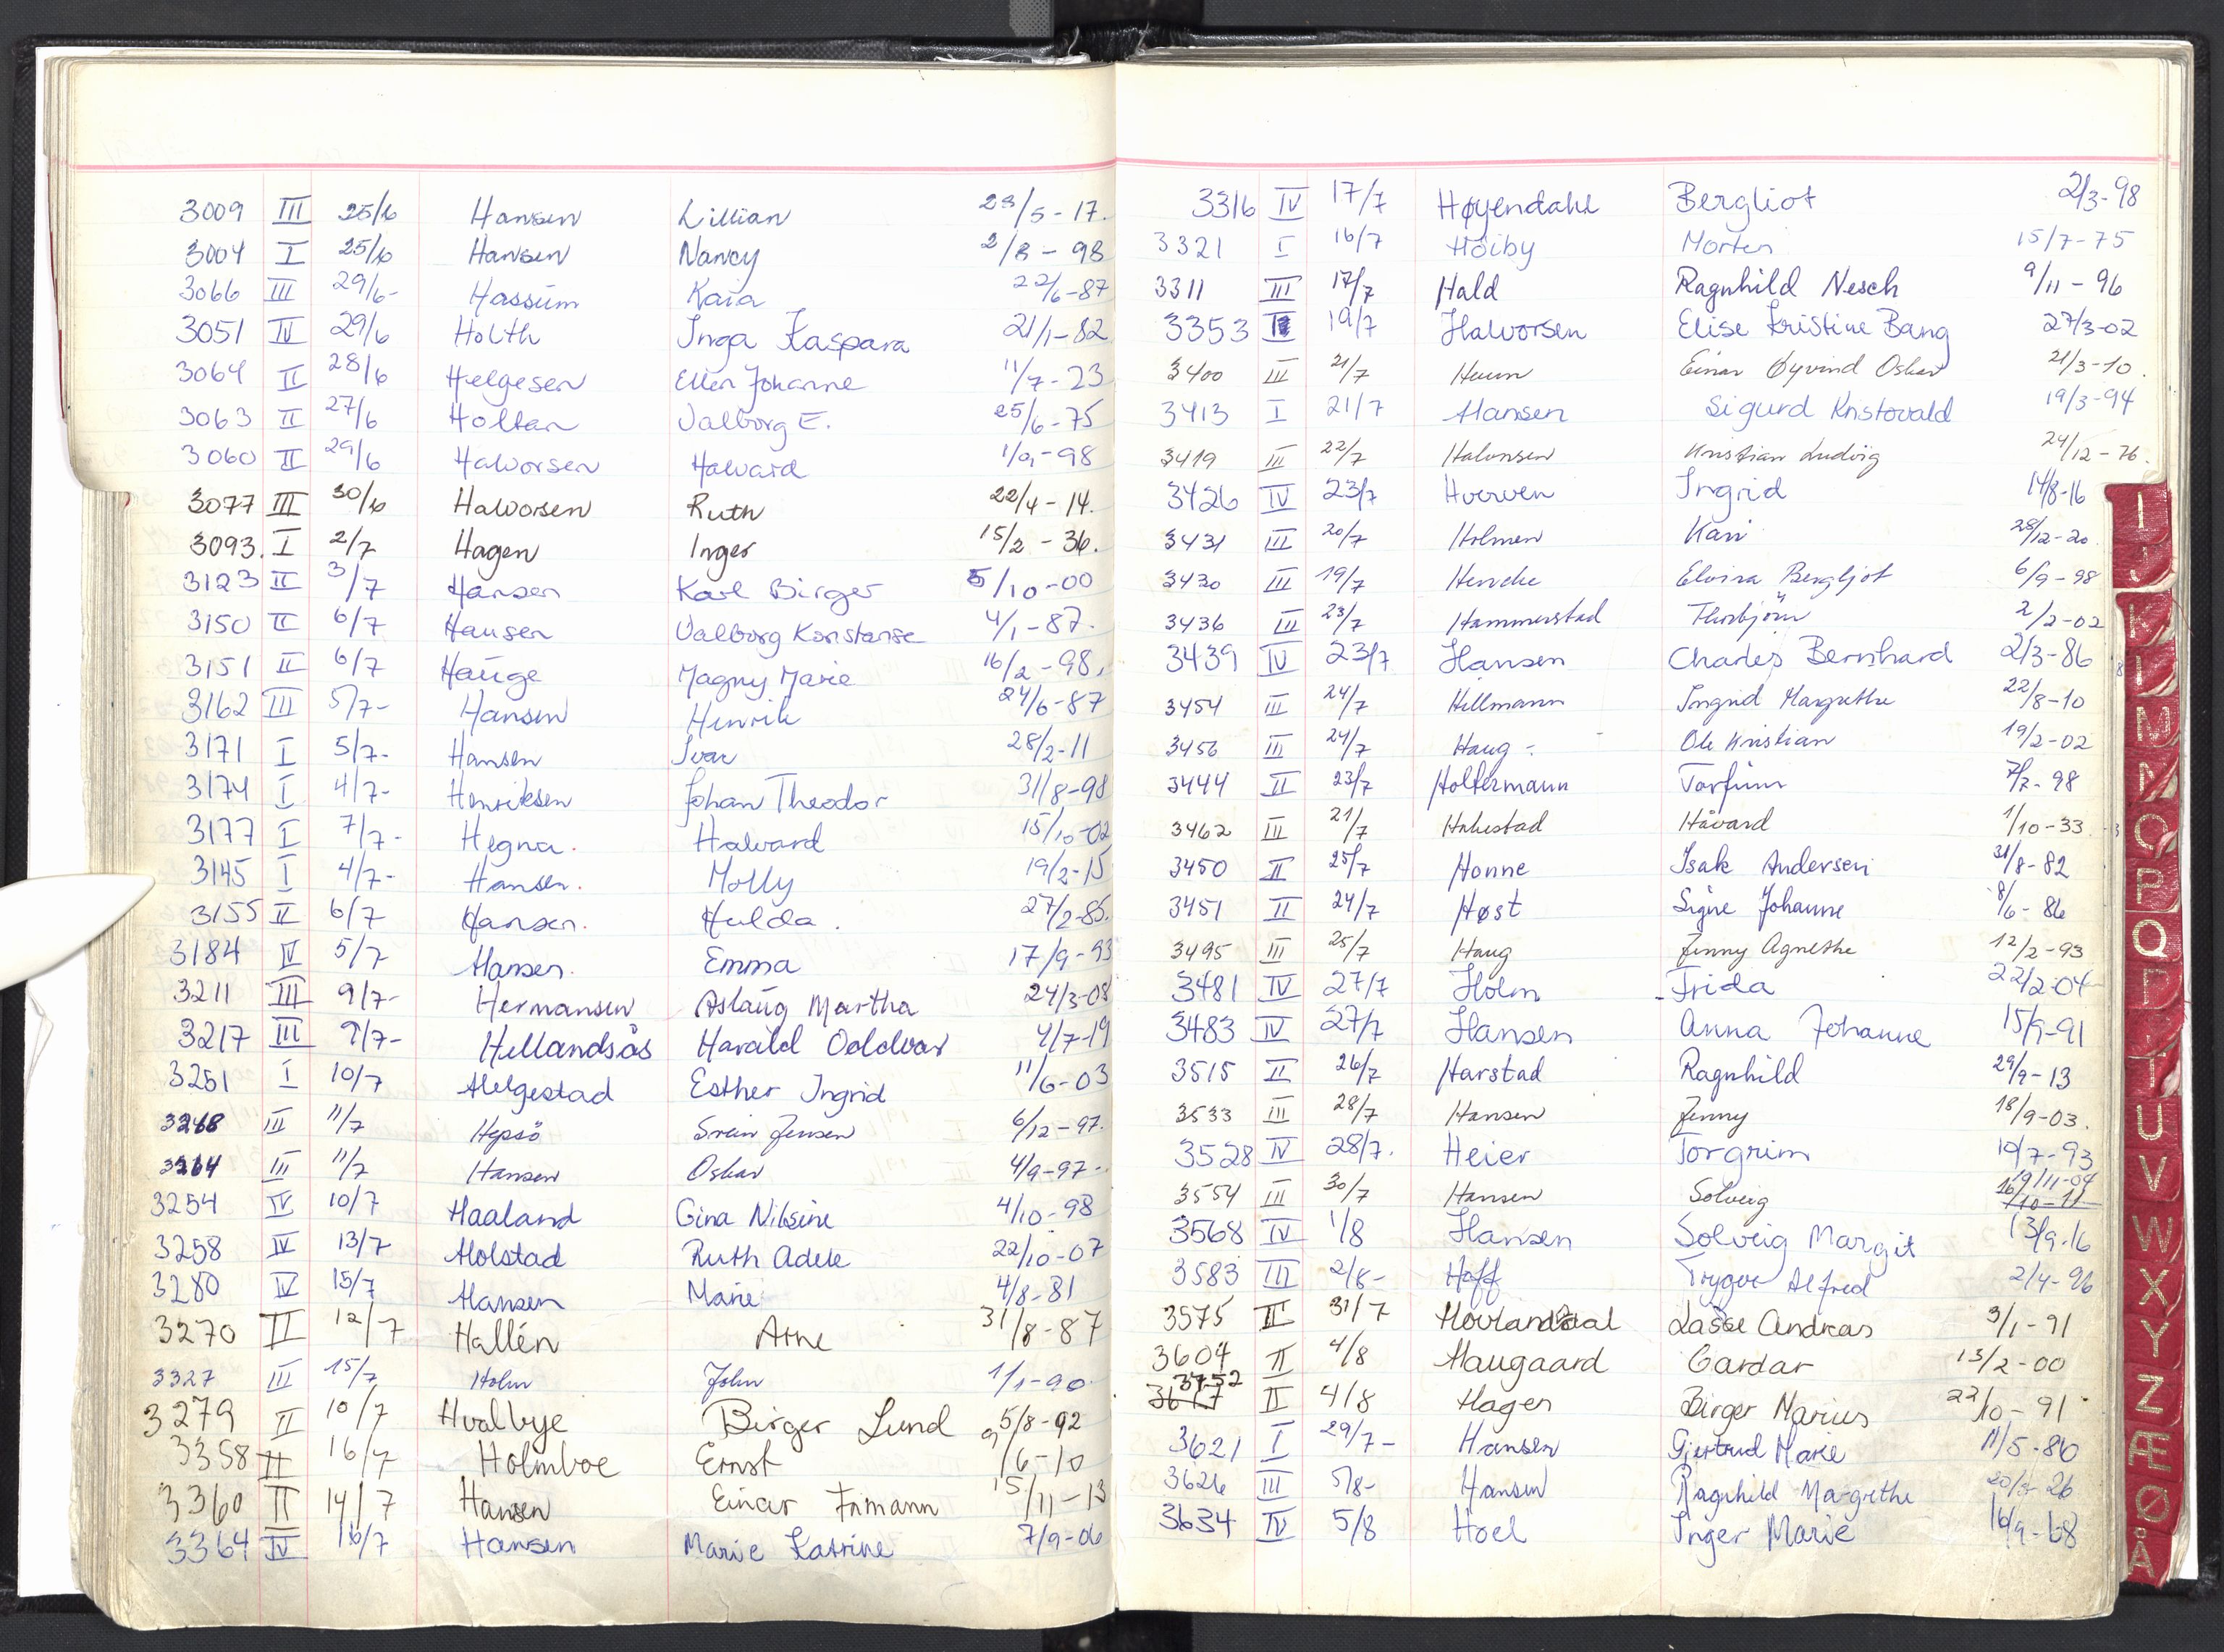 3009 III 25/6 Hansen Lillian 23/5-17.
3004 I 25/6 Hansen Nancy 2/8-98
3066 III 29/6- Hassum Kaia 22/6-87
3051 IV 29/6 Holth Inga Kaspara 21/1-82
3064 II 28/6 Helgesen Ellen Johanne 11/7-23
3063 II 27/6 Holtan Valborg E. 25/6-75
3060 II 29/6 Halvorsen Halvard 1/9-98
3077 III 30/6 Halvorsen Ruth 22/4-14.
3093. I 2/7 Hagen Inger 15/2-36.
3123 II 3/7 Hansen Karl Birger 5/10-00
3150 II 6/7 Hansen Valborg Konstanse 4/1-87.
3151 II 6/7 Hauge Magny Marie 16/2-98.
3162 III 5/7- Hansen Henrik 24/6-87
3171 I 5/7- Hansen Ivar 28/2-11
3174 I 4/7- Henriksen Johan Theodor 31/8-98
3177 I 7/7- Hegna. Halvard 15/10-02
3145 I 4/7- Hansen. Molly 19/2-15
3155 II 6/7 Hansen. Hulda. 27/2-85.
3184 IV 5/7 Hansen. Emma 17/9-93
3211 III 9/7- Hermansen Aslaug Martha 24/3-08
3217 III 9/7- Hellandsås Harald Oddvar 4/7-19
3251 I 10/7 Helgestad Esther Ingrid 11/6-03
3268 III 11/7 Hepsö Svein Jensen 6/12-97.
3264 III 11/7 Hansen Oskar 4/9-97-
3254 IV 10/7 Haaland Gina Nilsine 4/10-98
3258 IV 13/7 Holstad Ruth Adele 22/10-07
3280 IV 15/7 Hansen Marie 4/8-81
3270 II 12/7 Hallén Arne 31/8-87
3327 III 15/7 Holm John 1/1-90
3279 II 10/7 Hvalbye Birger Lund 5/8-92
3358 II 16/7 Holmboe Ernst 9/6-10
3360 II 14/7 Hansen Einar Frimann 15/11-13
3364 IV 16/7 Hansen Marie Katrine 7/9-06
3316 IV 17/7 Høyendahl Bergliot 2/3-98
3321 I 16/7 Höiby Morten 15/7-75
3311 III 17/7 Hald Ragnhild Nesch 9/11-96
3353 19/7 Halvorsen Elise Kristine Bang 27/3-02
3400 III 21/7 Einar Øyvind Oskar 21/3-10.
3413 I 21/7 Hansen Sigurd Kristovald 19/3-94
3419 III 22/7 Halvorsen Kristian Ludvig 24/12-76.
3426 IV 23/7 Hverven Ingrid 14/8-16
3431 III 20/7 Holmen Kari 28/12-20
3430 III 19/7 Elvira Bergljot 6/9-98
3436 III 23/7 Hammerstad Thorbjörn 2/2-02
3439 IV 23/7 Hansen Charles Bernhard 2/3-86
3454 III 24/7 Hellmann Ingrid Margrethe 22/8-10
3456 III 24/7 Haug- Ole Kristian 19/2-02
3444 II 23/7 Holtermann Torfinn 7/7-98
3462 III 21/7 Hakestad Håvard 1/10-33
3450 II 25/7 Honne Isak Andersen 31/8-82
3451 II 24/7 Høst Signe Johanne 8/6-86
3495 III 25/7 Haug Jenny Agnethe 12/2-93
3481 IV 27/7 Holm Frida 22/2-04
3483 IV 27/7 Hansen Anna Johanne 15/9-91
3515 II 26/7 Harstad Ragnhild 29/9-13
3533 III 28/7 Hansen Jenny 18/9-03.
3528 IV 28/7. Heier Torgrim 10/7-93
19/11-04
3554 III 30/7 Hansen Solveig 16/10-11
3568 IV 1/8 Hansen Solveig Margit 13/9-16
3583 III 2/8- Hoff Trygve Alfred 2/4-96
3575 II 31/7 Hovlandsdal Lasse Andreas 3/1-91
3604 II 4/8 Haugaard Gardar 13/2-00
3752
3617 II 4/8 Hagen Birger Marius 22/10-91
3621 I 29/7- Hansen Gjertrud Marie 11/5-80
3626 III 5/8- Hansen Ragnhild Margrethe 26
3634 IV 5/8 Hoel Inger Marie 16/9-68
I
J
K
L
M
N
O
P
Q
T
U
V
W
X
Y
Z
Æ
Ø
Å